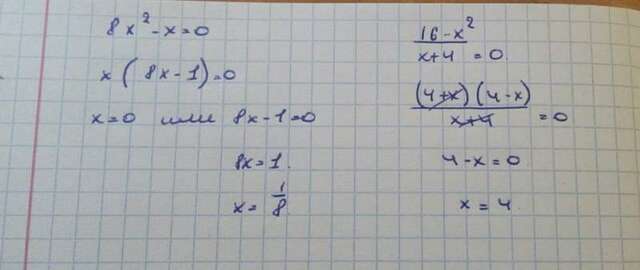 8x² - x = 0
x(8x - 1) = 0
x = 0 или 8x - 1 = 0
8x = 1.
x = 1/8
(16 - x²)/(x + 4) = 0.
((4 + x)(4 - x))/(x + 4) = 0
4 - x = 0
x = 4.